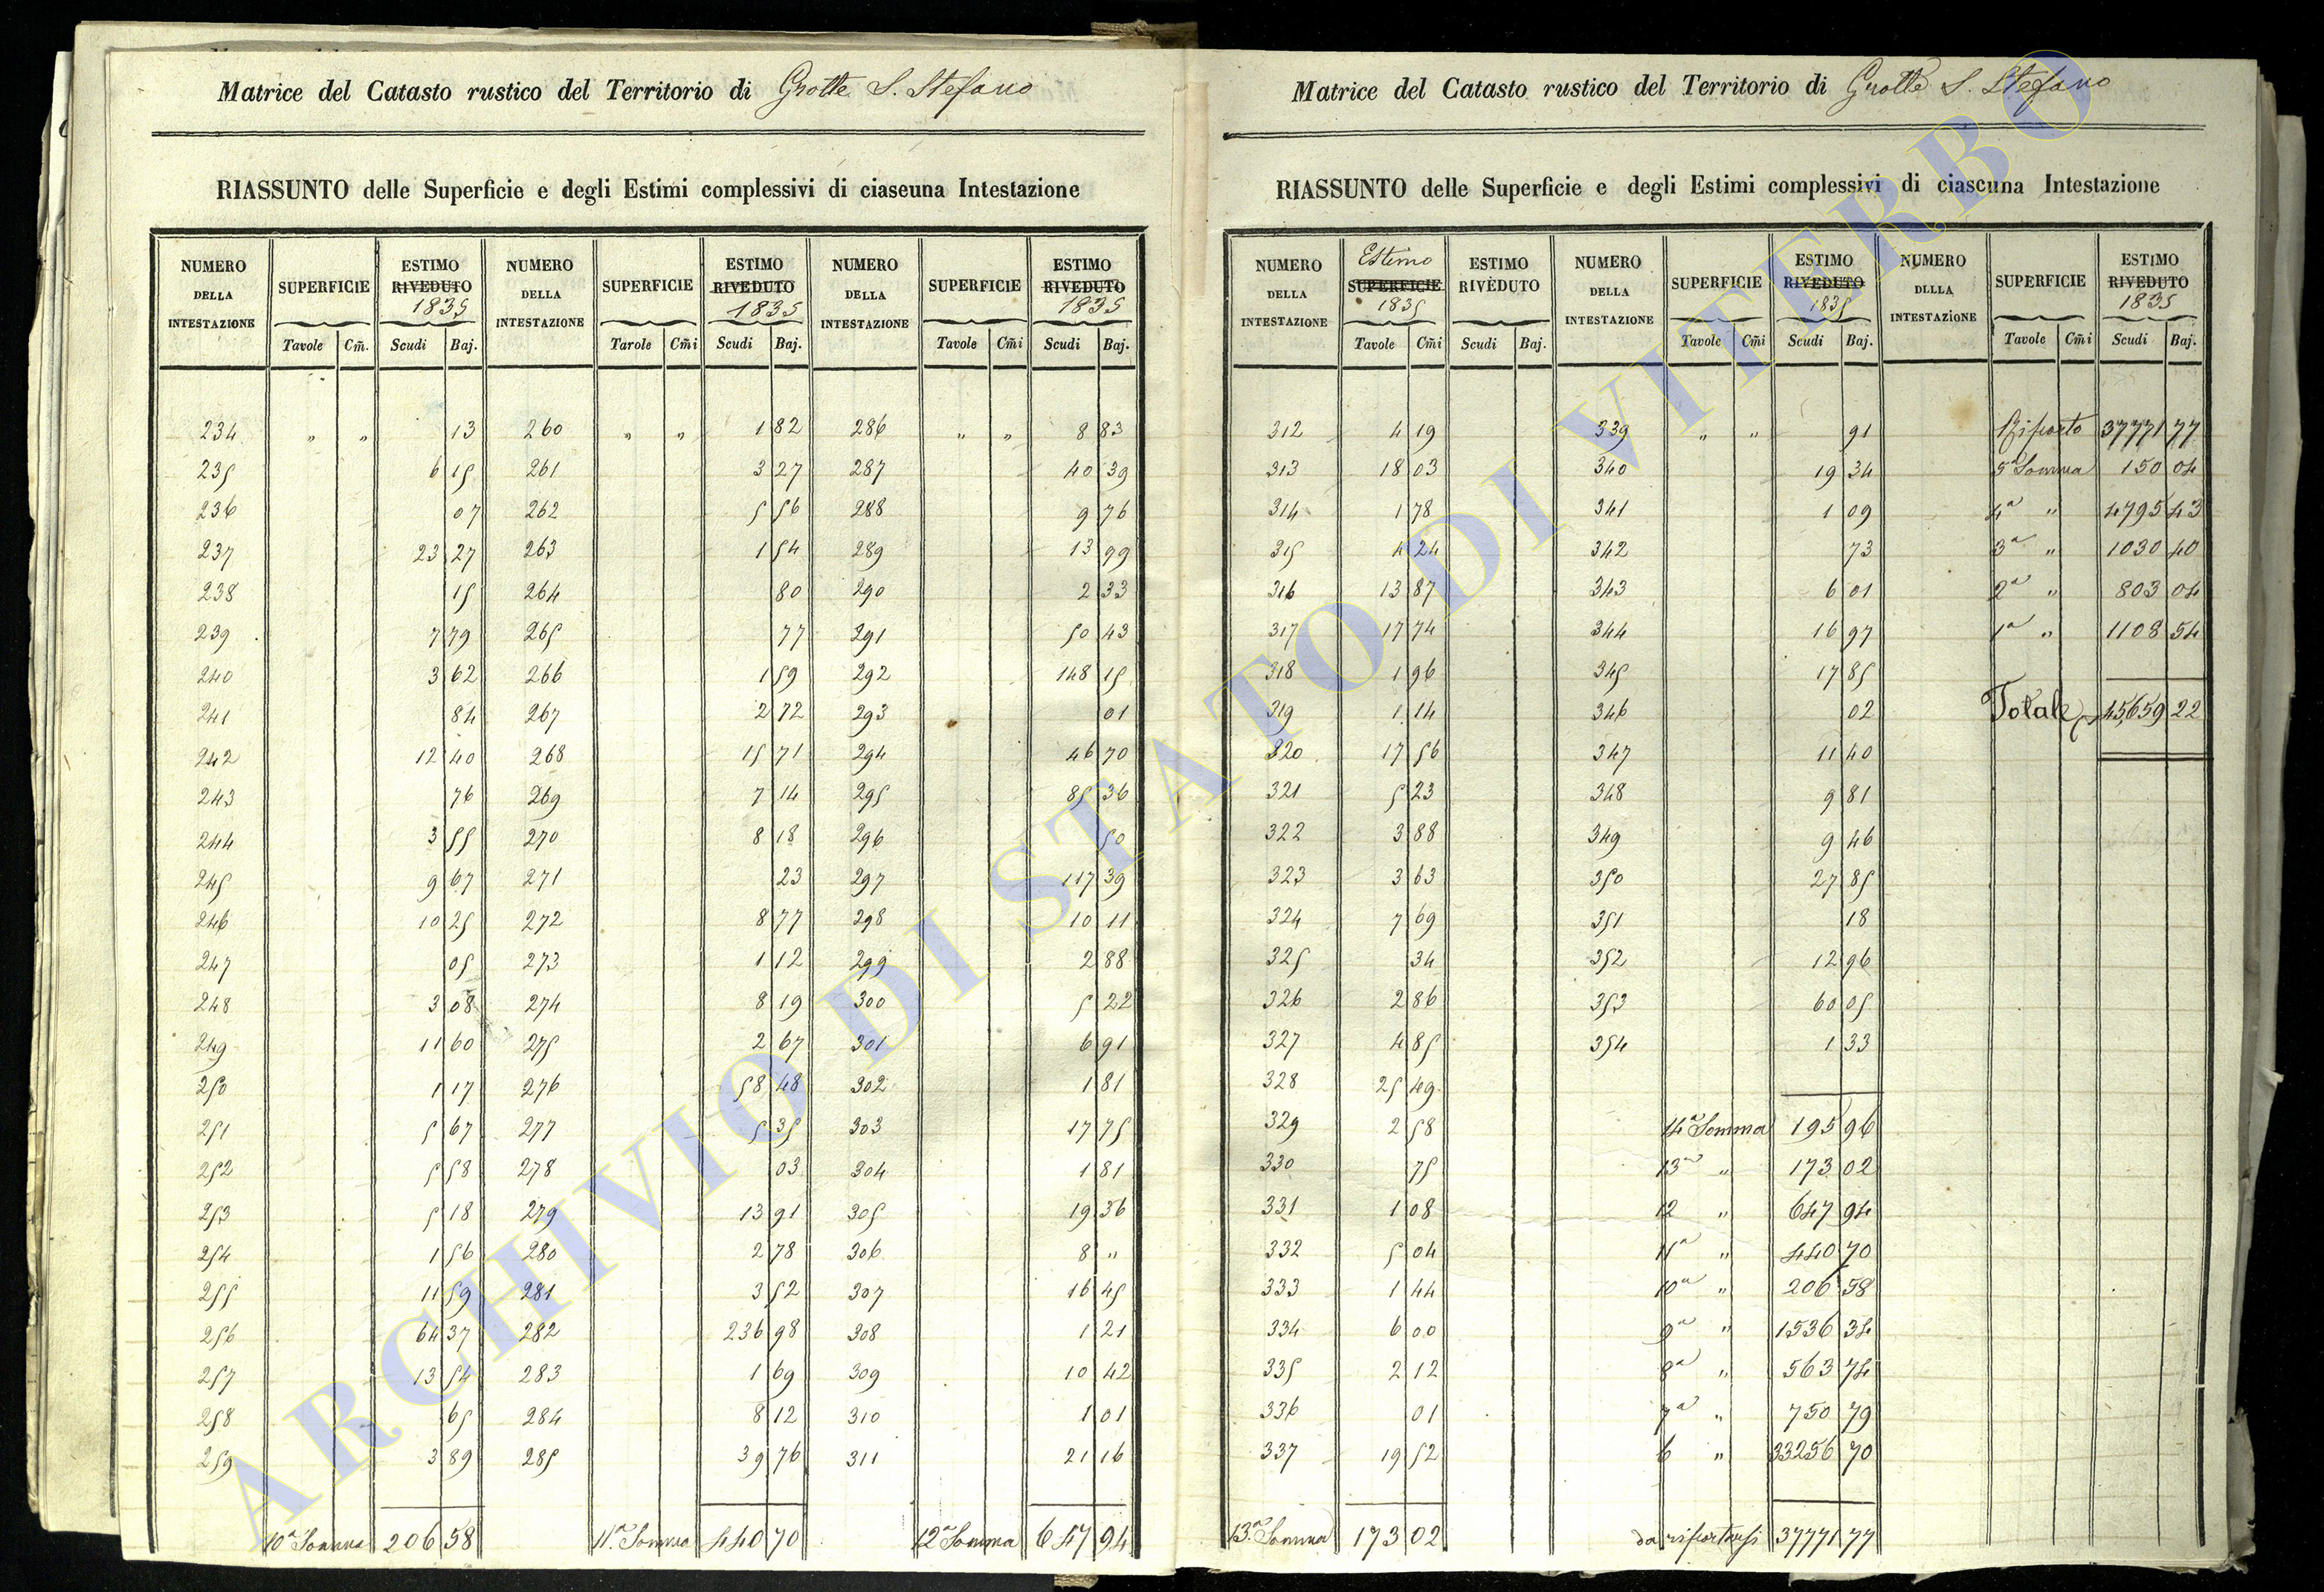 Matrice del Catasto rustico del Territorio di Grotte S. Stefano
RIASSUNTO delle Superficie e degli Estimi complessivi di ciaseuna Intestazione
NUMERO DELLA INTESTAZIONE SUPERFICIE ESTIMO RIVEDUTO 1835 NUMERO DELLA INTESTAZIONE SUPERFICIE ESTIMO RIVEDUTO 1835 NUMERO DELLA INTESTAZIONE SUPERFICIE ESTIMO RIVEDUTO 1835
Tavole Cm̃. Scudi Baj. Tarole Cm̃i Scudi Baj. Tavole Cm̃i Scudi Baj.
234 " " 13 260 " " 1 82 286 " " 8 83
235 6 15 261 3 27 287 40 39
236 07 262 5 56 288 9 76
237 23 27 263 1 54 289 13 99
238 15 264 80 290 2 33
239 7 79 265 77 291 50 43
240 3 62 266 1 59 292 148 15
241 84 267 2 72 293 01
242 12 40 268 15 71 294 46 70
243 76 269 7 14 295 85 36
244 3 55 270 8 18 296 50
245 9 67 271 23 297 117 39
246 10 25 272 8 77 298 10 11
247 05 273 1 12 299 2 88
248 3 08 274 8 19 300 5 22
249 11 60 275 2 67 301 6 91
250 1 17 276 58 48 302 1 81
251 5 67 277 5 35 303 17 75
252 5 58 278 03 304 1 81
253 5 18 279 13 91 305 19 36
254 1 56 280 2 78 306 8 "
255 11 59 281 3 52 307 16 45
256 64 37 282 236 98 308 1 21
257 13 54 283 1 69 309 10 42
258 65 284 8 12 310 1 01
259 3 89 285 39 76 311 21 16
10ª Somma 206 58 11ª Somma 440 70 12ª Somma 647 94
Matrice del Catasto rustico del Territorio di Grotte S. Stefano
RIASSUNTO delle Superficie e degli Estimi complessivi di ciascuna Intestazione
NUMERO DELLA INTESTAZIONE Estimo SUPERFICIE 1835 ESTIMO RIVEDUTO NUMERO DELLA INTESTAZIONE SUPERFICIE ESTIMO RIVEDUTO 1835 NUMERO DLLLA INTESTAZIONE SUPERFICIE ESTIMO RIVEDUTO 1835
Tavole Cm̃i Scudi Baj. Tavole Cm̃i Scudi Baj. Tavole Cm̃i Scudi Baj.
312 4 19 339 " " 91 Riporto 37771 77
313 18 03 340 19 34 5ª Somma 150 04
314 1 78 341 1 09 4ª " 4795 43
315 4 24 342 73 3ª " 1030 40
316 13 87 343 6 01 2ª " 803 04
317 17 74 344 16 97 1ª " 1108 54
318 1 96 345 17 85
319 1 14 346 02 Totale 45,659 22
320 17 56 347 11 40
321 5 23 348 9 81
322 3 88 349 9 46
323 3 63 350 27 85
324 7 69 351 18
325 34 352 12 96
326 2 86 353 60 05
327 4 85 354 1 33
328 25 49
329 2 58 14ª Somma 195 96
330 75 13ª " 173 02
331 1 08 12 " 647 94
332 5 04 11ª " 440 70
333 1 44 10ª " 206 58
334 6 00 9ª " 1536 34
335 2 12 8ª " 563 74
336 01 7ª " 750 79
337 19 52 6 " 33256 70
13.ª Somma 173 02 da riportarsi 37771 77
ARCHIVIO DI STATO DI VITERBO